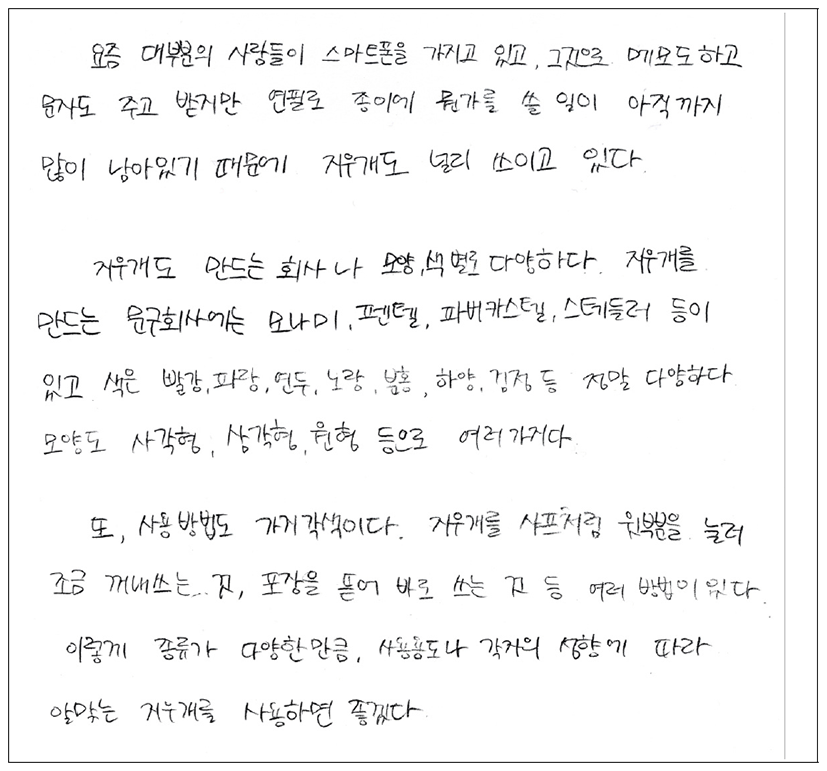 요즘 대부분의 사람들이 스마트폰을 가지고 있고, 그것으로 메모도하고
문자도 주고 받지만 연필로 종이에 뭔가를 쓸 일이 아직까지
많이 남아있기 때문에 지우개도 널리 쓰이고 있다.
지우개도 만드는 회사나 모양,색 별로 다양하다. 지우개를
만드는 문구회사에는 모나미, 펜텔, 파버카스텔, 스테들러 등이
있고 색은 빨강,파랑,연두,노랑,분홍,하양,검정 등 정말 다양하다
모양도 사각형, 삼각형, 원형 등으로 여러가지다.
또, 사용방법도 가지각색이다. 지우개를 샤프처럼 윗부분을 눌러
조금 꺼내쓰는 것, 포장을 뜯어 바로 쓰는 것 등 여러 방법이 있다.
이렇게 종류가 다양한만큼, 사용용도나 각자의 성향에 따라
알맞는 지우개를 사용하면 좋겠다.